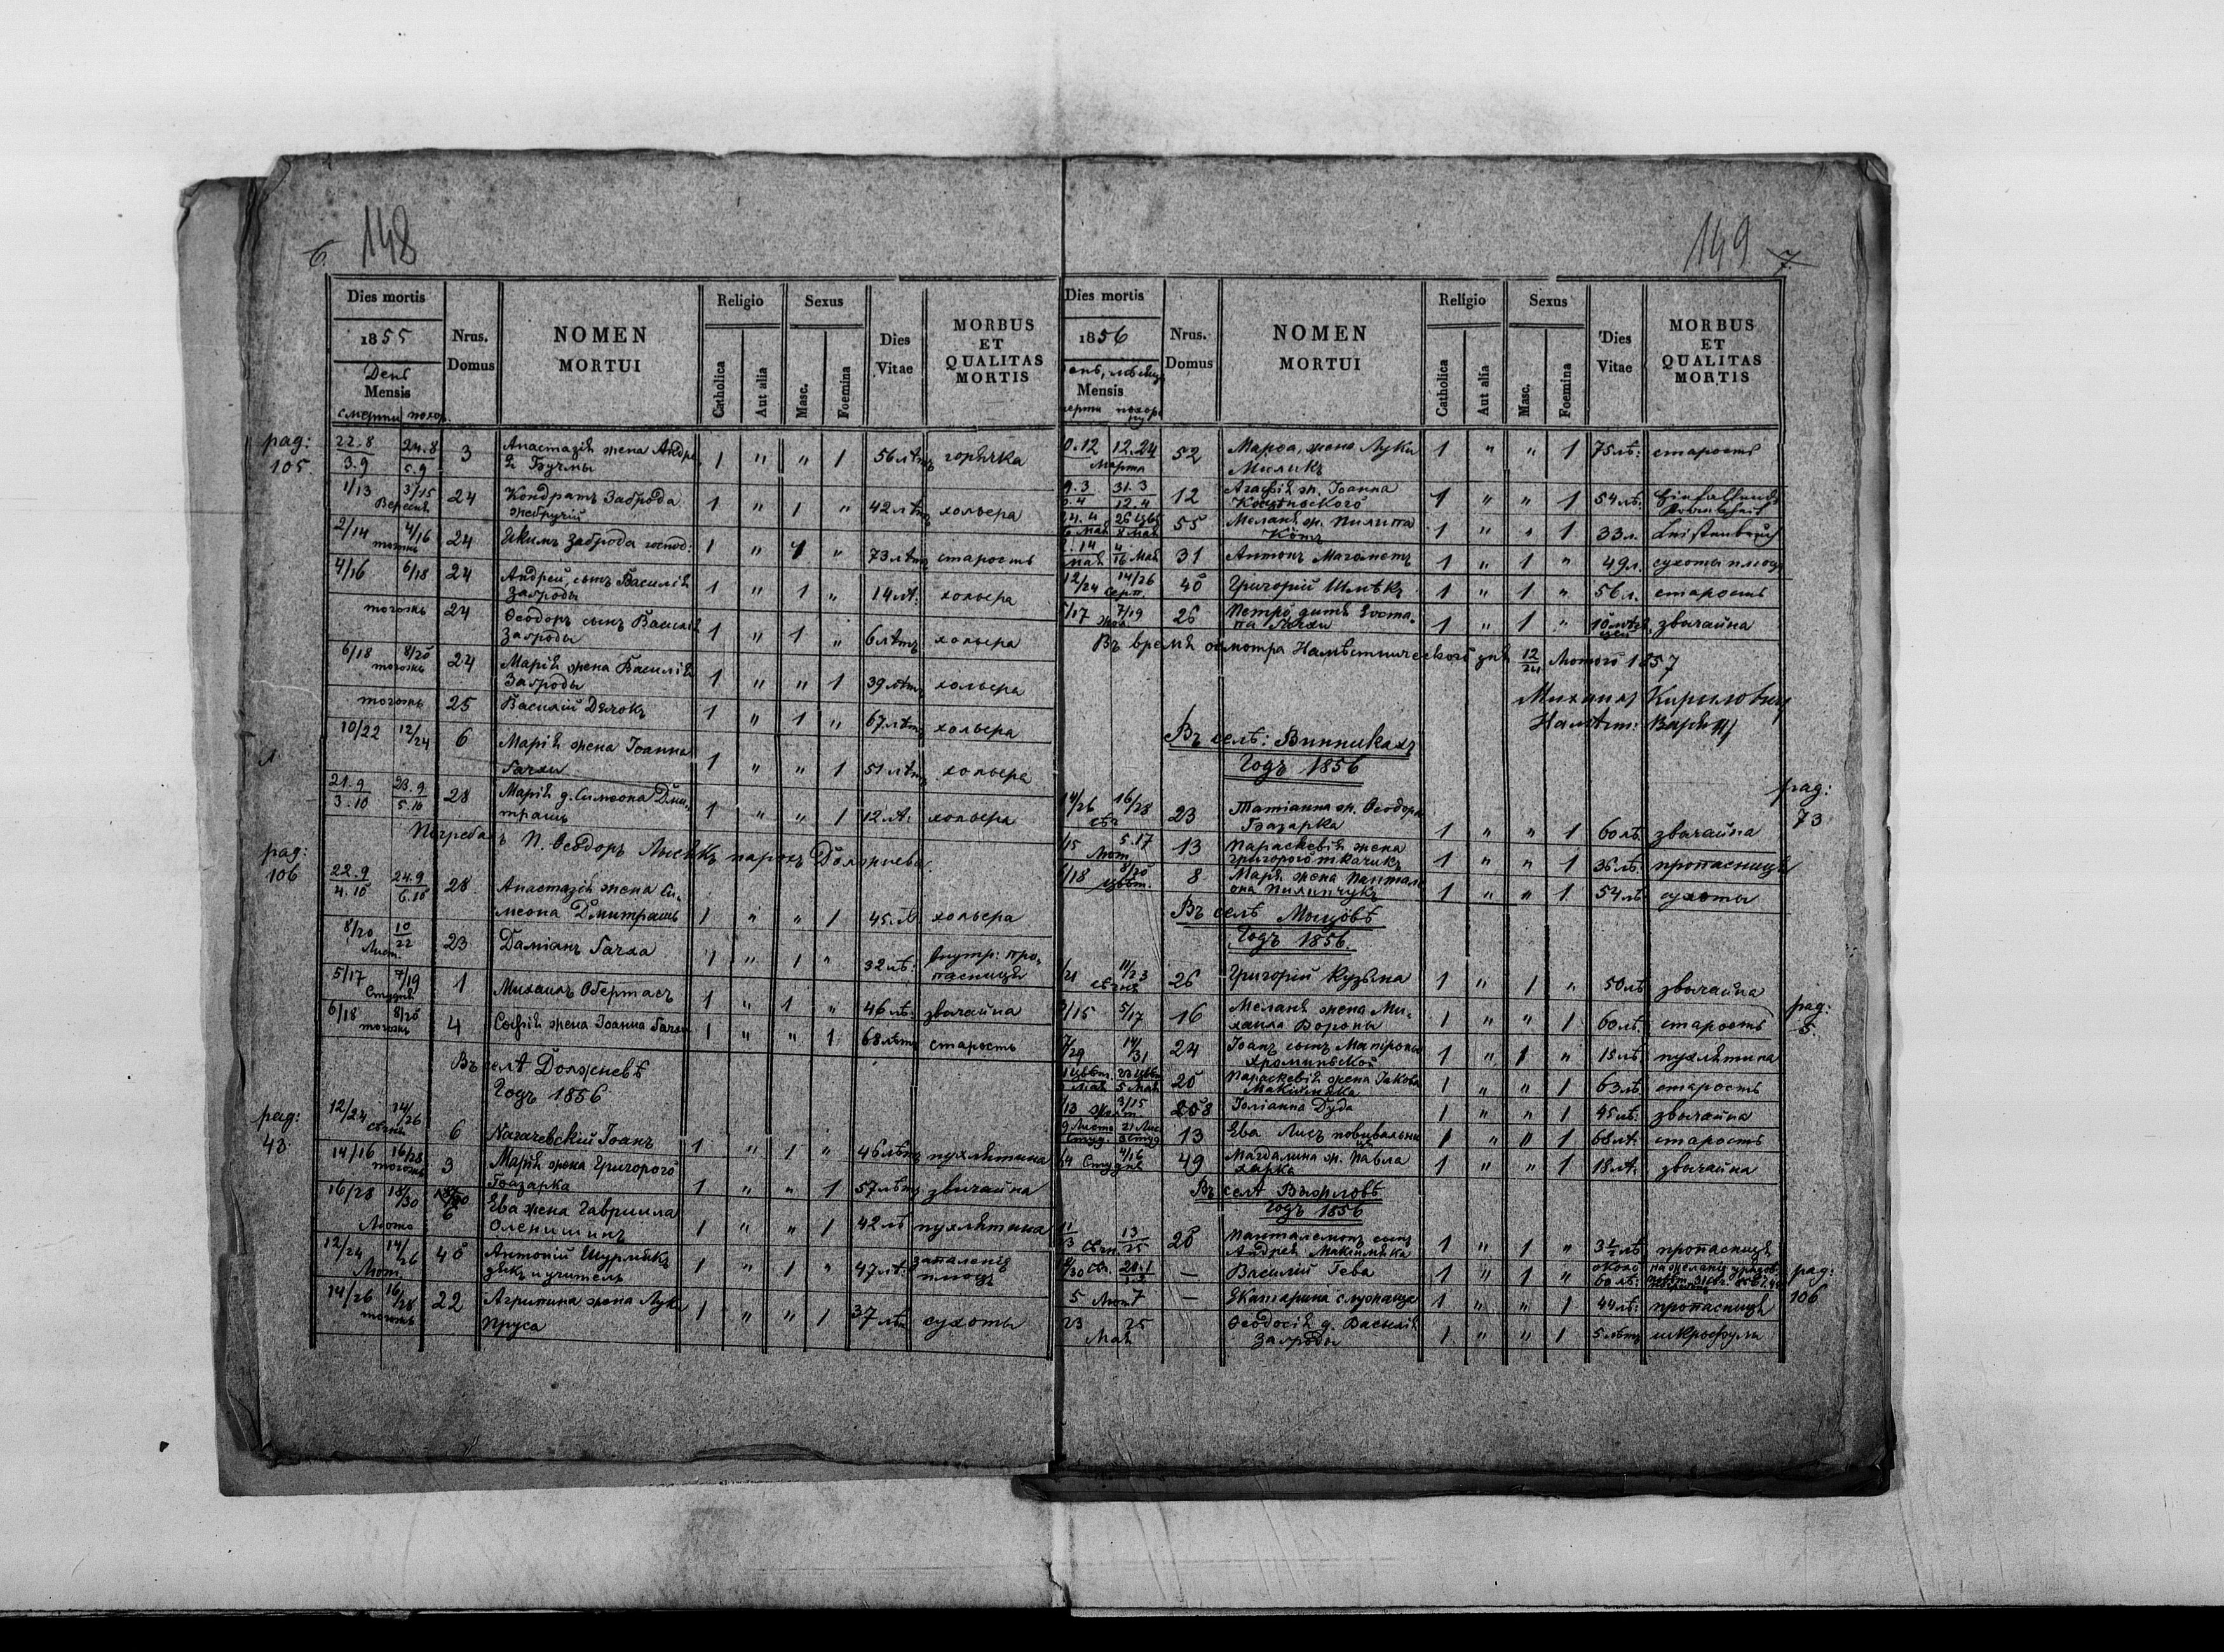 6. 148
Dies mortis
1855
День
Mensis
смерти похор.
Nrus. Domus
NOMEN MORTUI
Religio
Catholica
Aut alia
Sexus
Masc.
Foemina
Dies Vitae
MORBUS ET QUALITAS MORTIS
pag: 105
22.8 24.8 3 Анастазія жена Андре 1 " " 1 56 лѣтъ горячка
3.9 5.9 я Бучмы
1/13 3/15 24 Кондратъ Заброда 1 " 1 " 42 лѣтъ хольера
Вересня жебручій
2/14 4/16 24 Якимъ Заброда господ: 1 " 1 " 73 лѣтъ старость
тогожь
4/16 6/18 24 Андрей, сынъ Василія 1 " 1 " 14 лѣ. хольера
Заброды
тогожь 24 Ѳеодоръ сынъ Василія 1 " 1 " 6 лѣтъ хольера
Заброды
6/18 8/20 24 Марія жена Василія 1 " " 1 39 лѣтъ хольера
тогожь Заброды
тогожь 25 Василій Дячокъ 1 " 1 " 67 лѣтъ хольера
10/22 12/24 6 Марія жена Іоанна 1 " " 1 51 лѣтъ хольера
Гачхи
21.9 23.9 28 Марія д. Симеона Дми- 1 " " 1 12 лѣ. хольера
3.10 5.10 трашъ
Погребалъ П. Ѳеодоръ Лысякъ парохъ Должнева
pag: 106
22.9 24.9 28 Анастазія жена Си-
4.10 6.10 меона Дмитрашъ 1 " " 1 45 лѣ хольера
8/20 10/22 23 Даміанъ Гачха 1 " 1 " 32 лѣ: внутр: про-
Лист. пасниця
5/17 7/19 1 Михаилъ Обертасъ 1 " 1 " 46 лѣ: звычайна
Студня
6/18 8/20 4 Софія жена Іоанна Гачхи 1 " " 1 68 лѣтъ старость
тогожь
Въ селѣ Должневѣ
Годъ 1856
pag: 43.
12/24 14/26 6 Нагачевскій Іоанъ 1 " 1 " 46 лѣтъ пухлятина
сѣчня
14/16 16/28 3 Марія жена Григорого 1 " " 1 57 лѣтъ звичайна
тогожь Базарка
16/28 18/30 6 Ева жена Гавриила 1 " " 1 42 лѣ пухлятина
Люто Оленишинъ
12/24 14/26 40 Антоній Шурмякъ 1 " 1 " 47 лѣ: запаленіе
Лют. дякъ и учитель плюцъ
14/26 16/28 22 Агрипина жена Луки 1 " " 1 37 лѣт сухоты
тогожь Пруса
149 7.
Dies mortis
1856
Mensis
Nrus. Domus
NOMEN MORTUI
Religio
Catholica
Aut alia
Sexus
Masc.
Foemina
Dies Vitae
MORBUS ET QUALITAS MORTIS
12.24 52 Марѳа, жена Луки 1 " " 1 75 лѣ: старость
Марта Миликъ
31.3 12 Агафія ж. Іоанна 1 " " 1 54 лѣ.
12.4
55 Меланя ж. Пилипа 1 " " 1 33 л.
Котъ
31 Антонъ Магаметъ 1 " 1 " 49 л. сухоты плюцъ
12/24 14/26 40 Григорій Шмѣкъ 1 " 1 " 56 л. старость
Серп.
5/17 7/19 26 Петро дитя Эоста- 1 " 1 " 10 мѣся звычайна
па Гачхи цей
Въ время осмотра Намѣстнического дня 12/24 Лютого 1857
Михаилъ Кириловичъ
Намѣст: Варяжъ
Въ селѣ: Винникахъ
Годъ 1856
pag: 73
14/26 16/28 23 Татіанна ж. Ѳеодора
сѣч Базарка 1 " " 1 60 лѣ. звычайна
5.17 13 Параскевія жена
Лют. Григорого Ткачикъ 1 " " 1 36 лѣ: пропасниця
8/20 8 Марія жена Пантале
Цвѣт. она Пилипчукъ 1 " " 1 54 лѣ сухоты
Въ селѣ Мыцовѣ
Годъ 1856.
11/23 26 Григорій Кузьма 1 " 1 " 50 лѣ звычайна
сѣчня
pag: 5.
3/15 5/17 16 Меланя жена Ми- 1 " " 1 60 лѣ. старость
хаила Вороны
14/31 24 Іоанъ сынъ Матроны 1 " 1 " 15 лѣ пухлятина
Хроминьской
20 Параскевія жена Іакова 1 " " 1 63 лѣ. старость
5 Мая Макімяка
3/15 208 Юліанна Дуда 1 " " 1 45 лѣ: звычайна
13 Ева Лисъ повивальни 1 " " 1 68 лѣ. старость
ця
4/16 49 Магдалина ж. Павла 1 " " 1 18 лѣ. звычайна
Студня Харка
Въ селѣ Выжловѣ
Годъ 1856
13/25 20 Панталемонъ сынъ 1 " 1 " 3½ лѣ пропасниця
Сѣчн Андрея Макімяка
pag: 106
— Василій Гева 1 " 1 " около 60 лѣ:
5 Лют 7 — Екатарина служаща 1 " " 1 44 лѣ: пропасниця
23 25 Ѳеодосія д. Василія 1 " " 1 5 лѣтъ шкрофулы
Мая Заброды